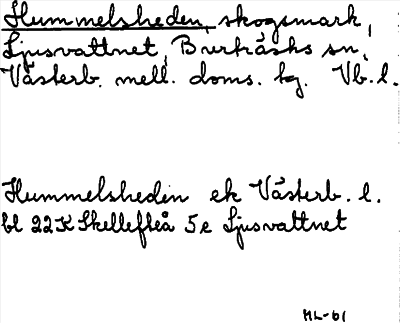 Hummelsheden, skogsmark,
Ljusvattnet, Burträsks sn,
Västerb. mell. doms. hg. Vb. l.
Hummelsheden ek Västerb. l.
bl 22K Skellefteå 5e Ljusvattnet
HL-61